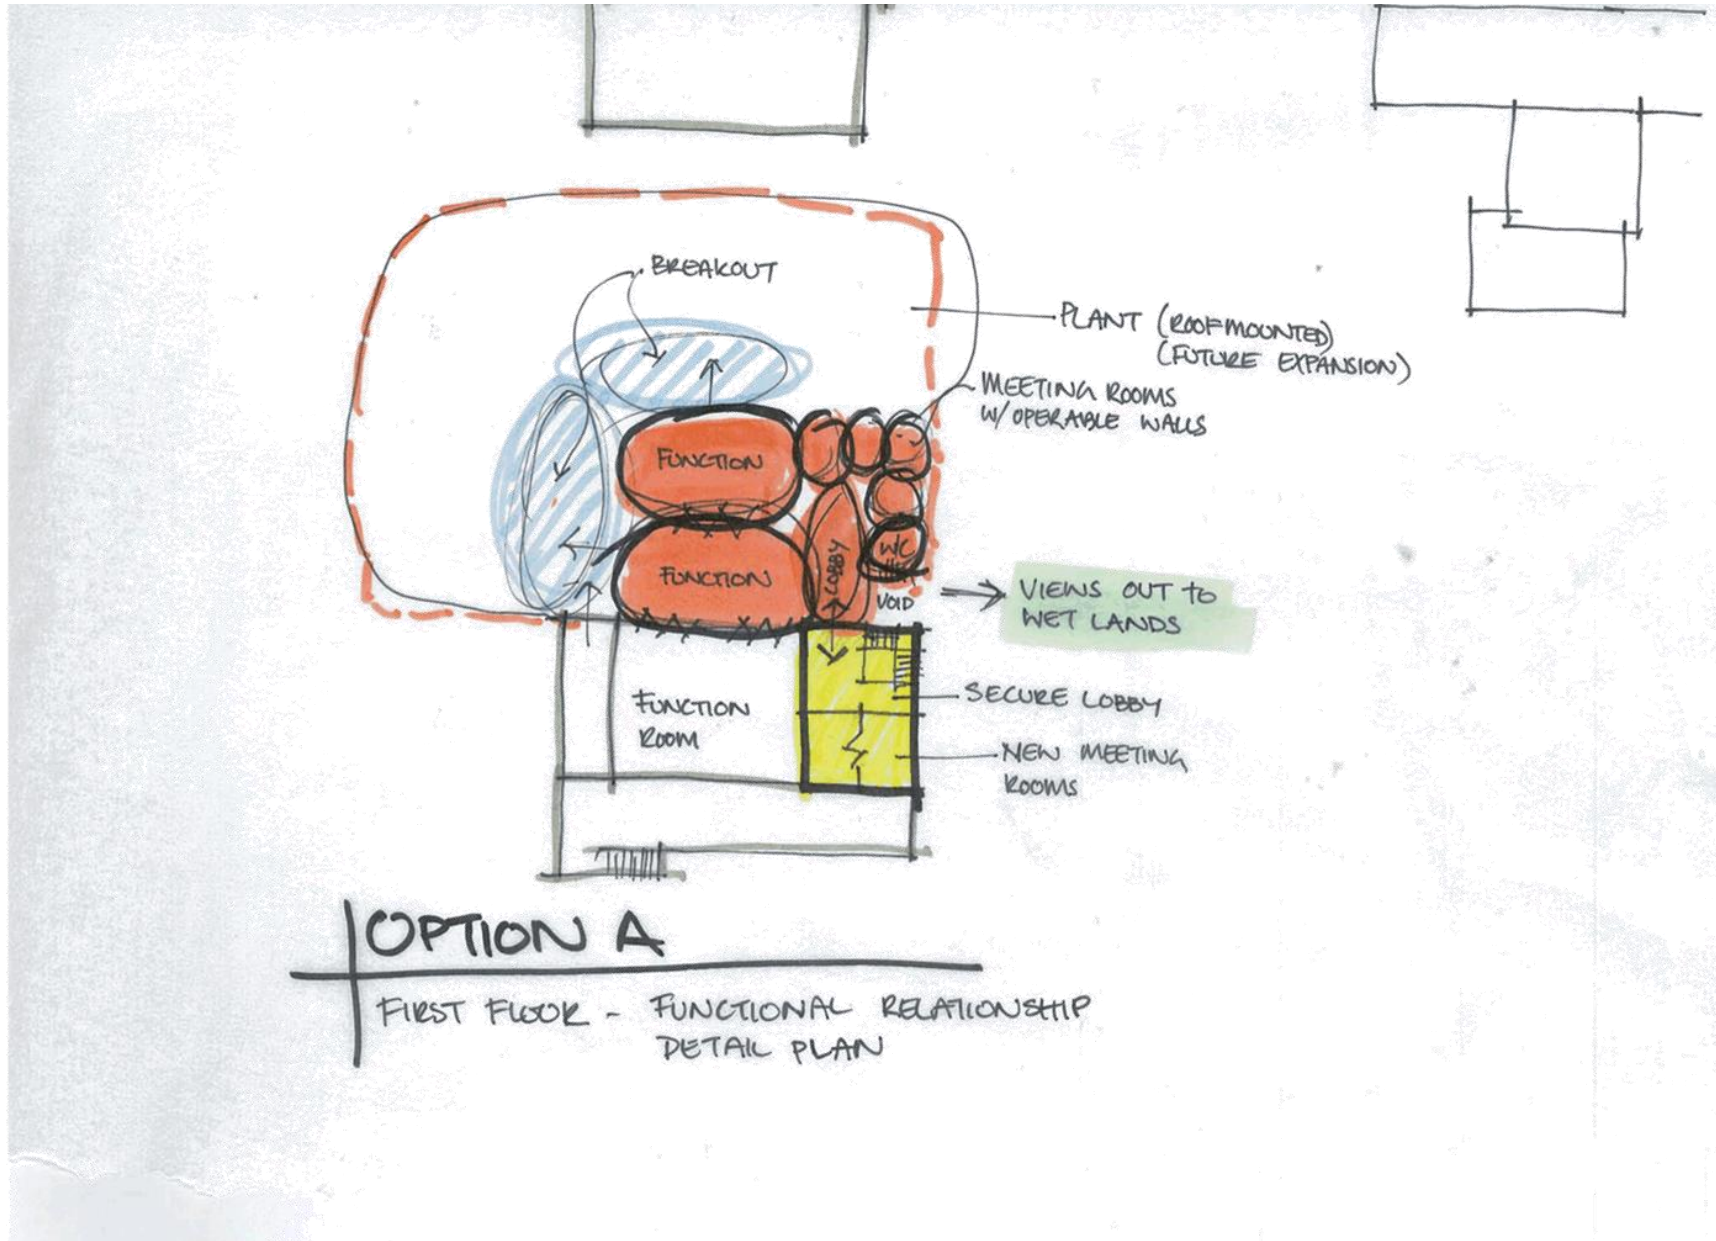 BREAKOUT
PLANT (ROOFMOUNTED)
(FUTURE EXPANSION)
MEETING ROOMS
W/OPERABLE WALLS
FUNCTION
FUNCTION
LOBBY
WC
VOID
VIEWS OUT TO
WET LANDS
FUNCTION
ROOM
SECURE LOBBY
NEW MEETING
ROOMS
OPTION A
FIRST FLOOR - FUNCTIONAL RELATIONSHIP
DETAIL PLAN